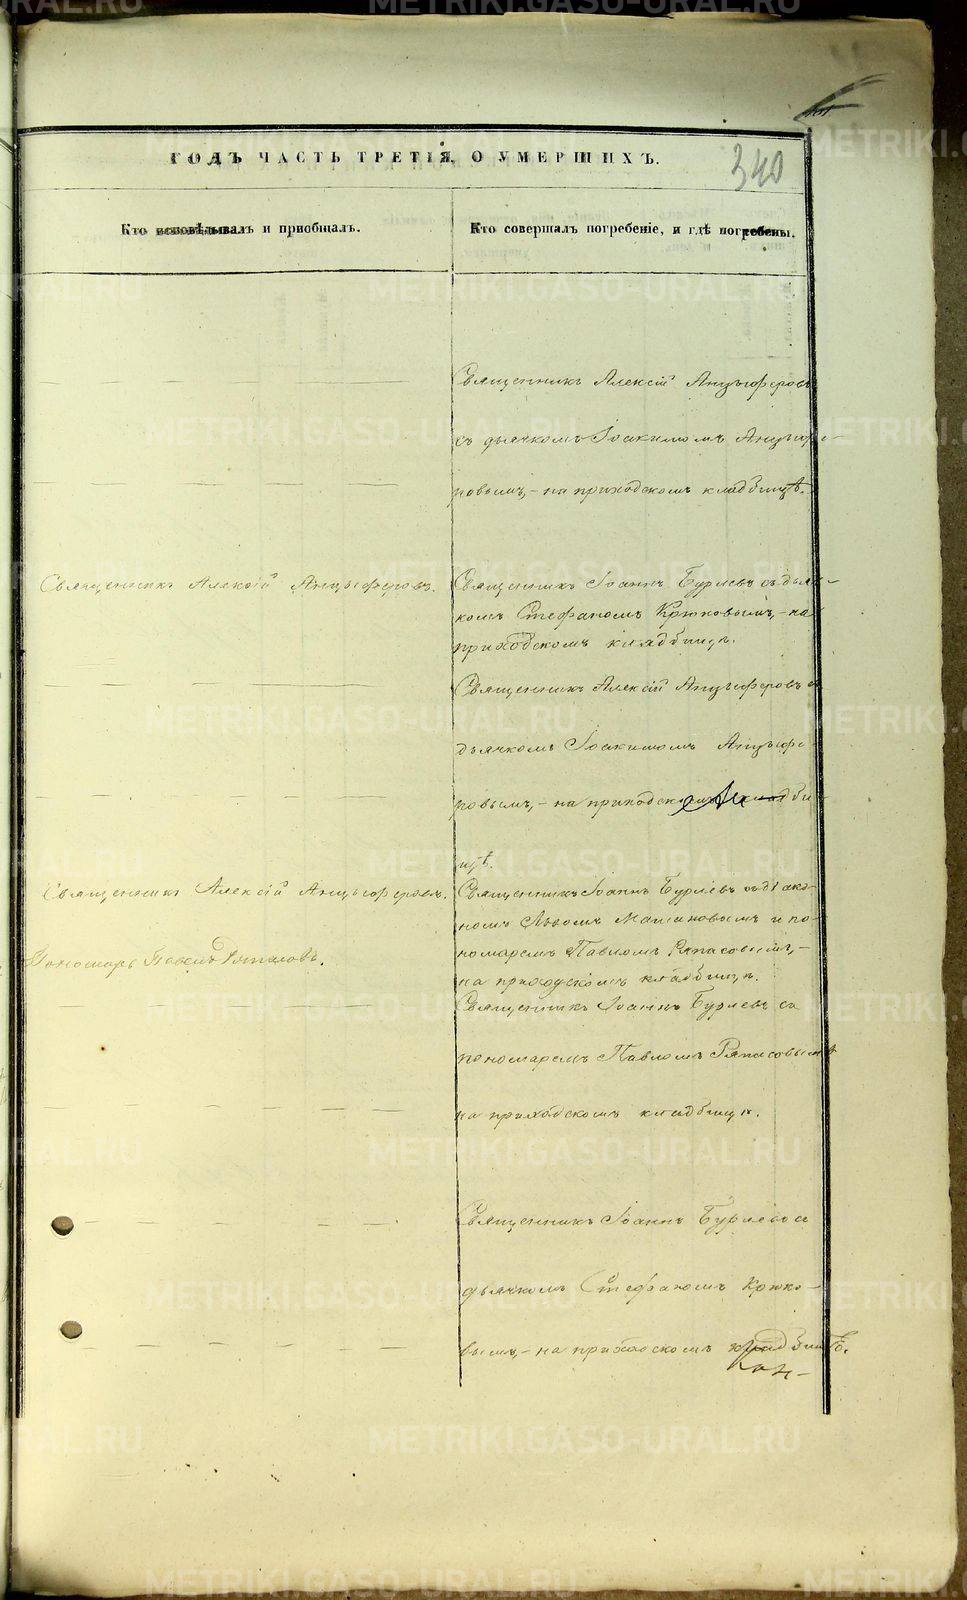 340
ГОДЪ ЧАСТЬ ТРЕТІЯ, О УМЕРШИХЪ.
Кто исповѣдывалъ и пріобщалъ.
Кто совершалъ погребеніе, и гдѣ погребены.
Священникъ Алексій Анцыферовъ
съ дьячкомъ Іоакимомъ Анцыфе-
ровымъ, - на приходскомъ кладбищѣ.
Священникъ Алексій Анцыферовъ.
Священникъ Іоаннъ Бурдевъ съ дьяч-
комъ Стефаномъ Крюковымъ, - на
приходскомъ кладбищѣ.
Священникъ Алексій Анцыферовъ съ
дьячкомъ Іоакимомъ Анцыфе-
ровымъ, - на приходскомъ кладби-
щѣ.
Священникъ Алексій Анцыферовъ.
Пономарь Павелъ
Священникъ Іоаннъ съ діако-
номъ Львомъ и по-
номаремъ Павломъ Ряпасовымъ, -
на приходскомъ кладбищѣ.
Священникъ Іоаннъ съ
пономаремъ Павломъ Ряпасовымъ
на приходскомъ кладбищѣ.
Священникъ Іоаннъ съ
дьячкомъ Стефаномъ Крюко-
вымъ, - на приходскомъ кладбищѣ.
METRIKI.GASO-URAL.RU